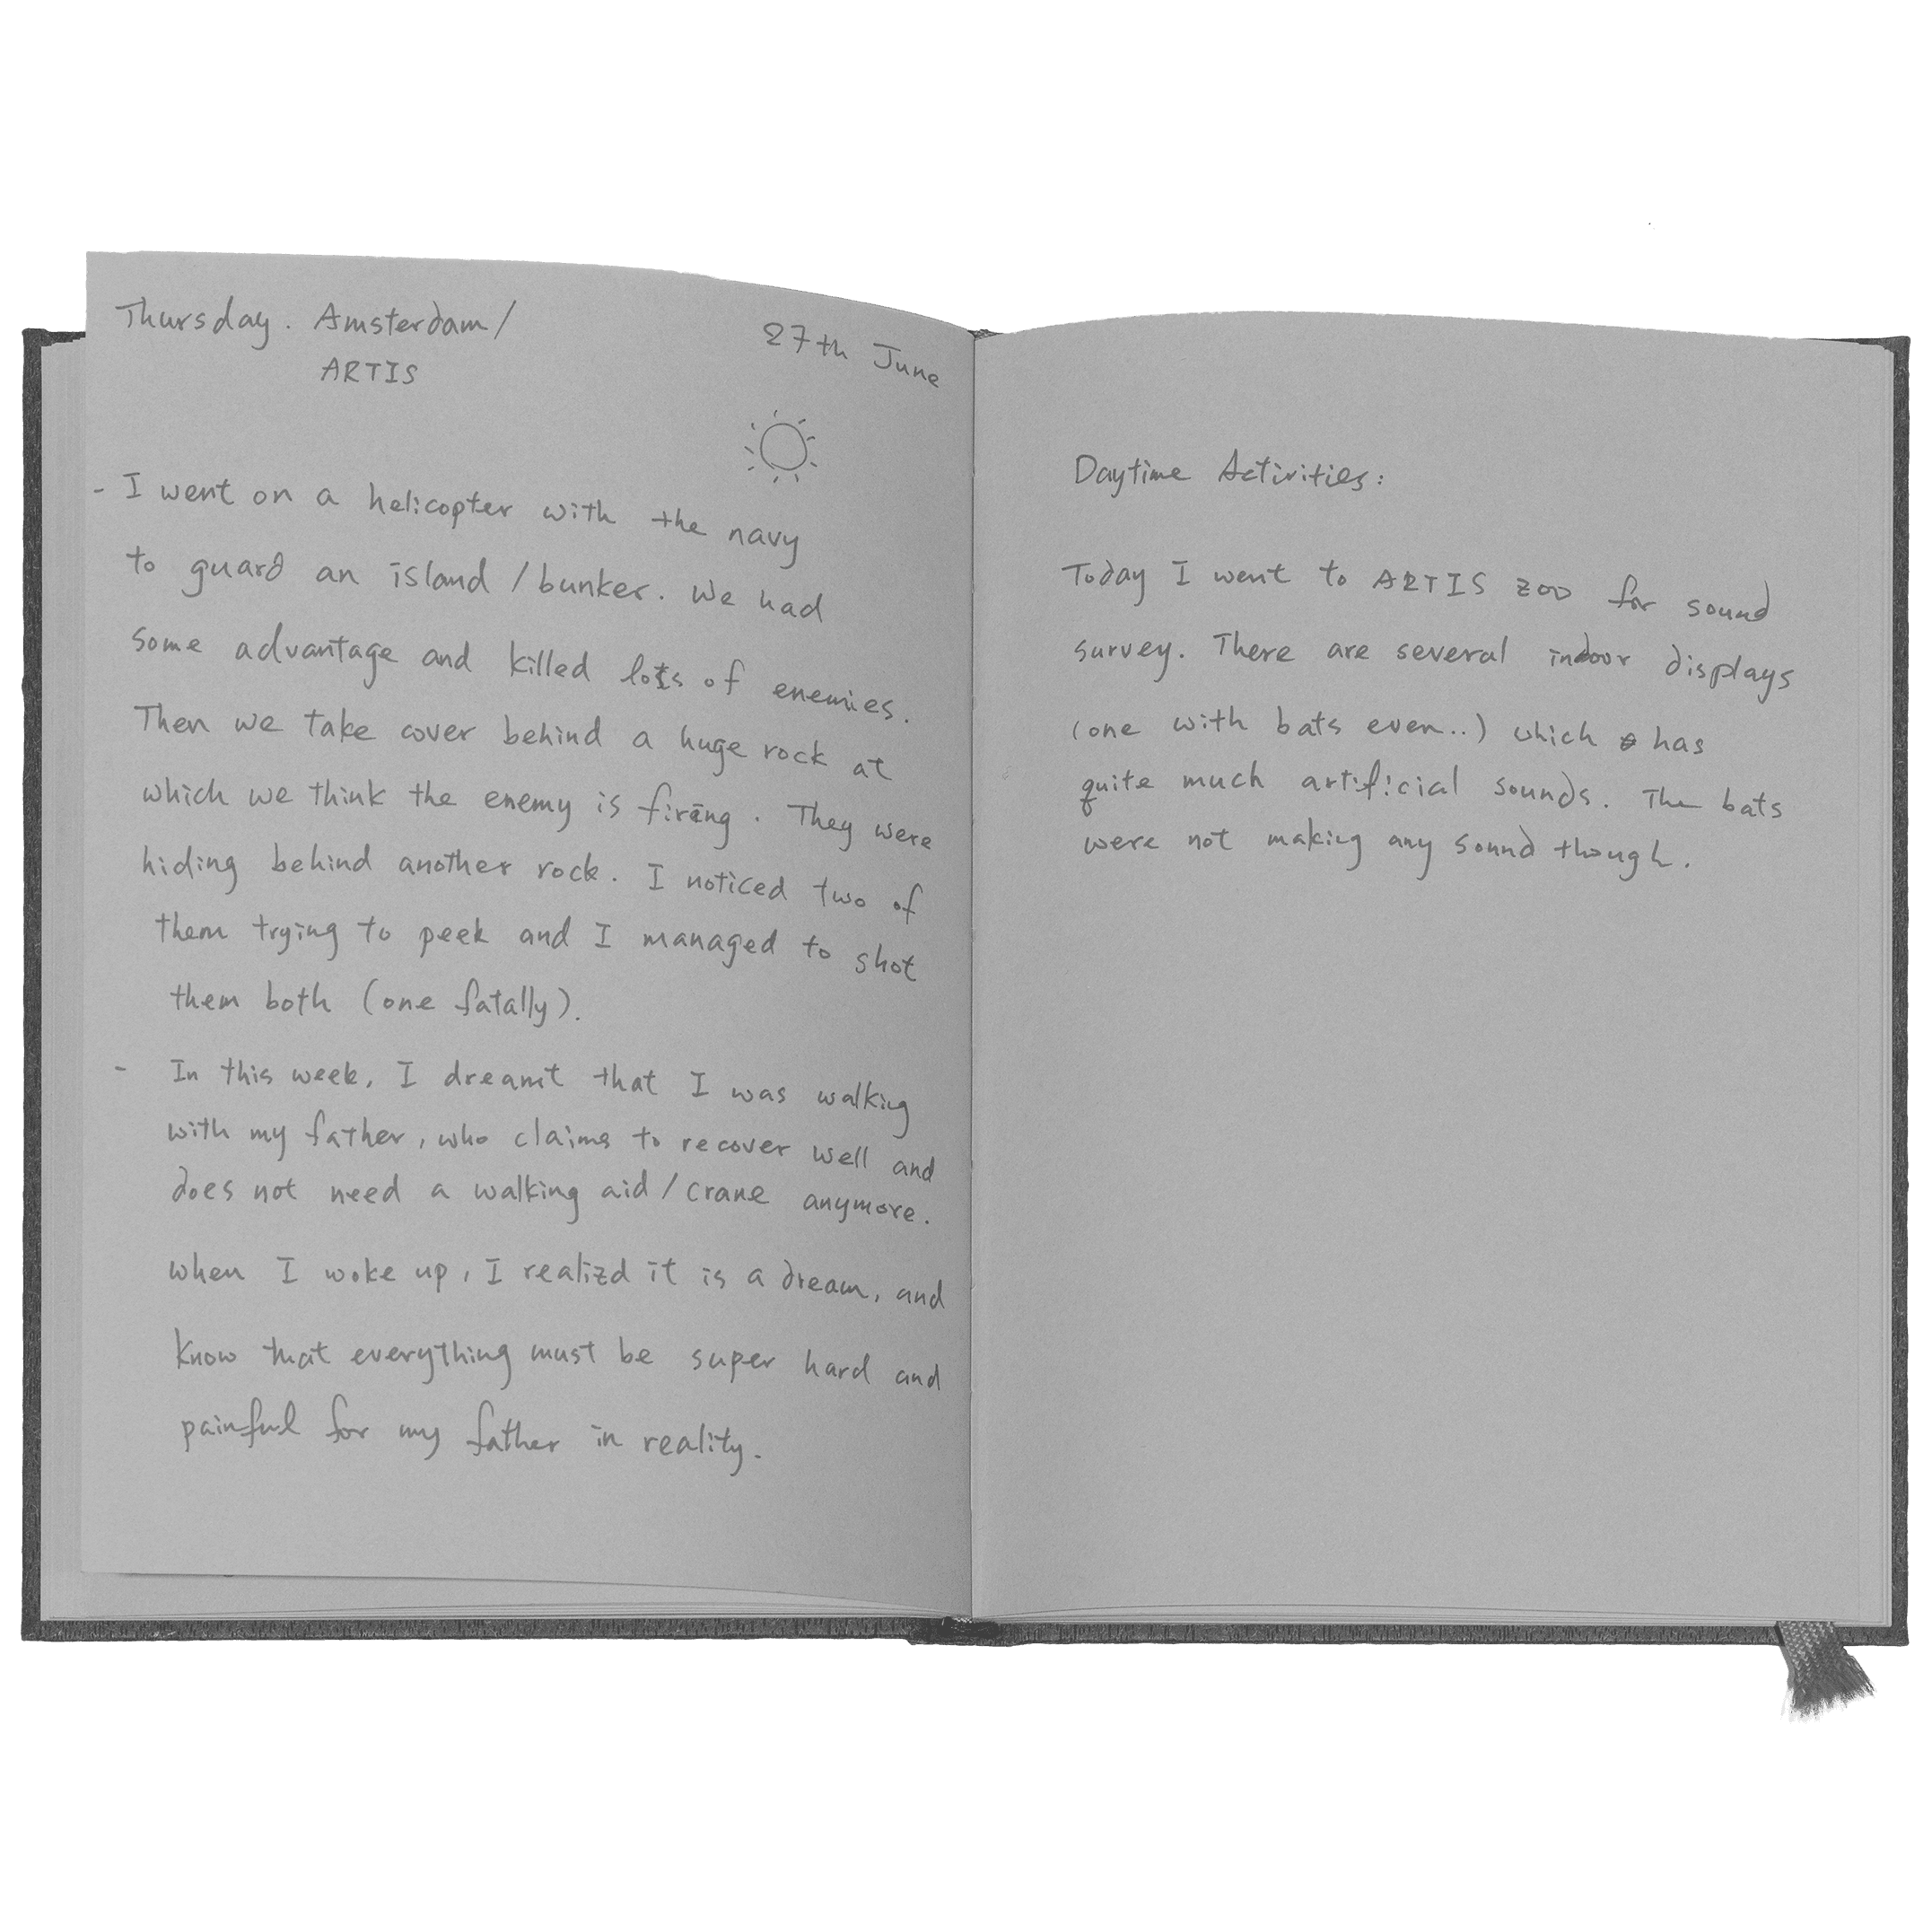 Thursday. Amsterdam/
ARTIS
27th June
- I went on a helicopter with the navy
to guard an island / bunker. We had
some advantage and killed lots of enemies.
Then we take cover behind a huge rock at
which we think the enemy is firing. They were
hiding behind another rock. I noticed two of
them trying to peek and I managed to shot
them both (one fatally).
- In this week, I dreamt that I was walking
with my father, who claims to recover well and
does not need a walking aid / crane anymore.
When I woke up, I realizd it is a dream, and
know that everything must be super hard and
painful for my father in reality.
Daytime Activities:
Today I went to ARTIS ZOO for sound
survey. There are several indoor displays
(one with bats even..) which has
quite much artificial sounds. The bats
were not making any sound though.